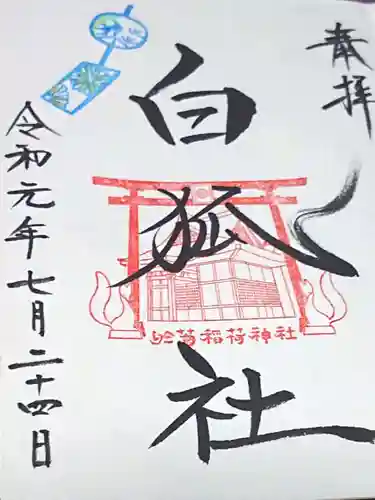 奉拝
白狐社
鈴着稲荷神社
令和元年七月二十四日